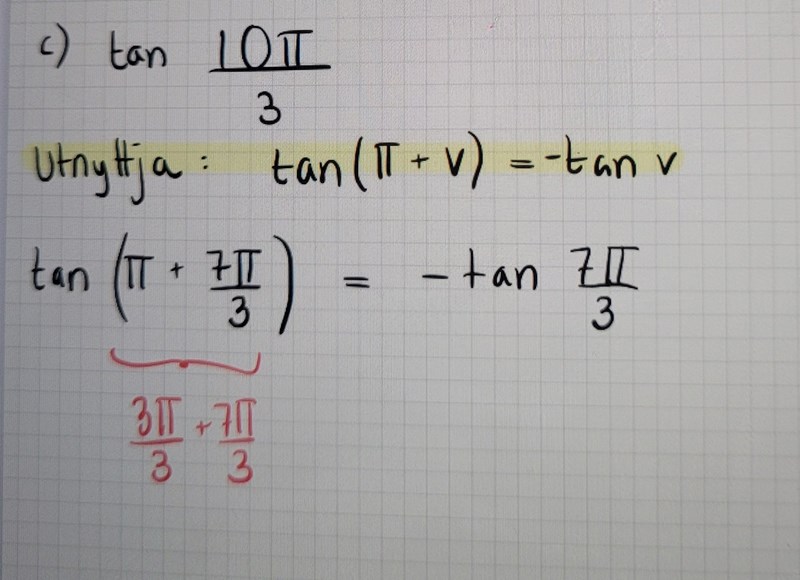 c) tan 10π/3
Utnyttja: tan(π + v) = -tan v
tan (π + 7π/3) = - tan 7π/3
3π/3 + 7π/3